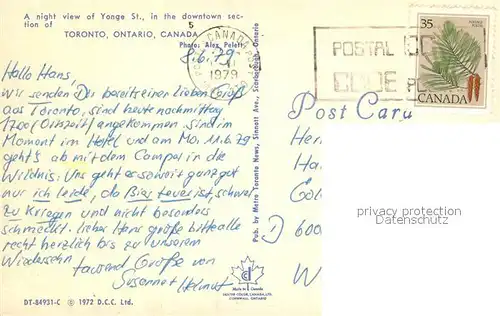 A night view of Yonge St., in the downtown sec-
tion of
TORONTO, ONTARIO, CANADA
Photo: Alex Pelett
5
8.6.79
Hallo Hans,
Wir senden Dir bereits einer lieben Gruß
aus Toronto, sind heute nachmittag
1700 (Ortszeit) angekommen sind im
Moment im Hotel und am Mo. 11.6.79
geht's ab mit dem Camper in die
Wildnis. Uns geht es soweit ganz gut
nur ich leide, da Bier teuer ist, schwer
zu kriegen und nicht besonders
schmeckt. lieber Hans grüße bitte alle
recht herzlich bis zu unserem
Wiedersehn
tausend Grüße von
Susanne + Helmut
DT-84931-C © 1972 D.C.C. Ltd.
Pub. by Metro Toronto News, Sinnott Ave., Scarborough, Ontario
Made in Canada
CANADA
1979
POSTAL CO
CODE PO
35
CANADA
Post Card
Her
Ha
D 600
W
privacy protection
Datenschutz